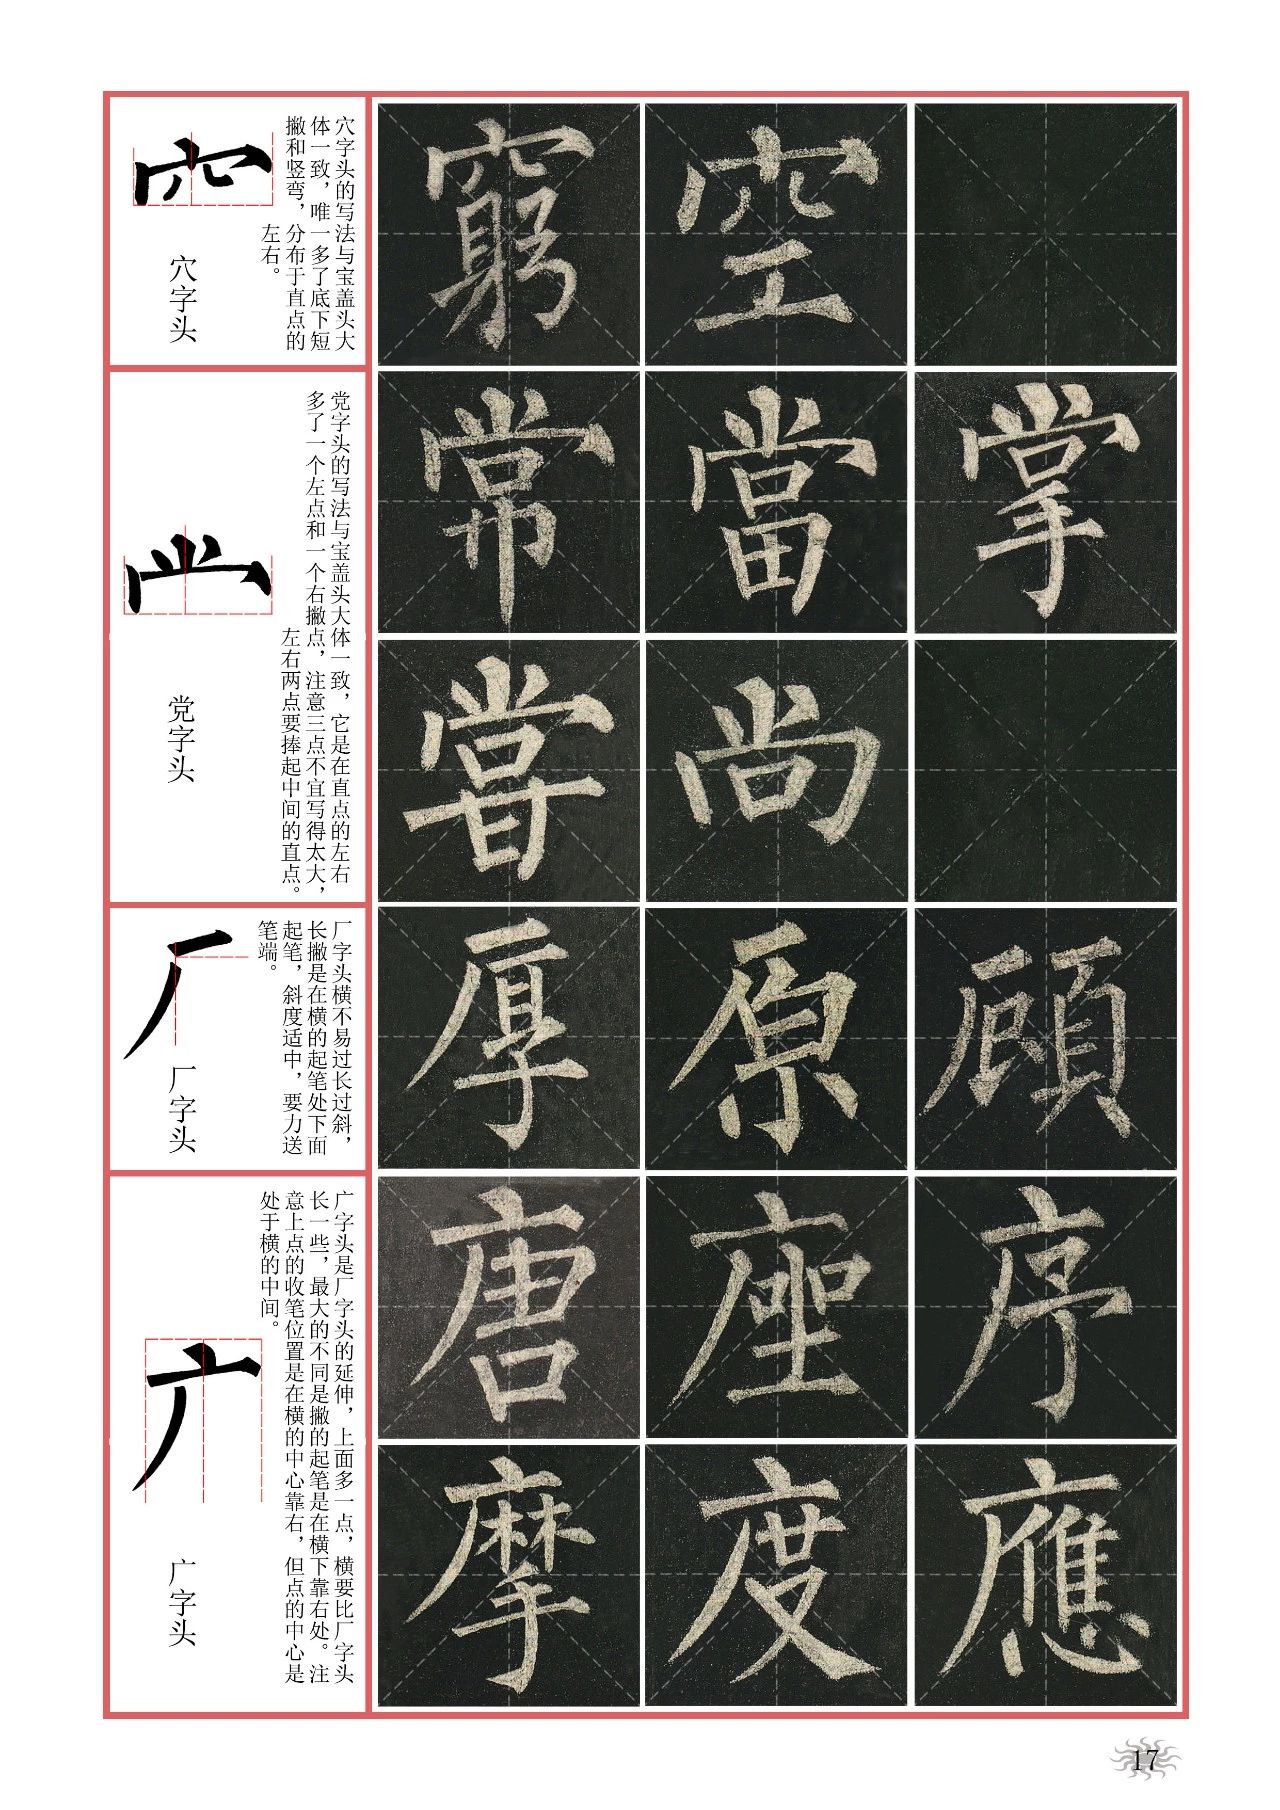 穴字头的写法与宝盖头大
体一致，唯一多了底下短
撇和竖弯，分布于直点的
左右。
穴字头
窮 空
党字头的写法与宝盖头大体一致，它是在直点的左右
多了一个左点和一个右撇点，注意三点不宜写得太大，
左右两点要捧起中间的直点。
党字头
常 當 掌
甞 尚
厂字头横不易过长过斜，
长撇是在横的起笔处下面
起笔，斜度适中，要力送
笔端。
厂字头
厚 原 顧
广字头是厂字头的延伸，上面多一点，横要比厂字头
长一些，最大的不同是撇的起笔是在横下靠右处。注
意上点的收笔位置是在横的中心靠右，但点的中心是
处于横的中间。
广字头
唐 座 序
摩 度 應
17